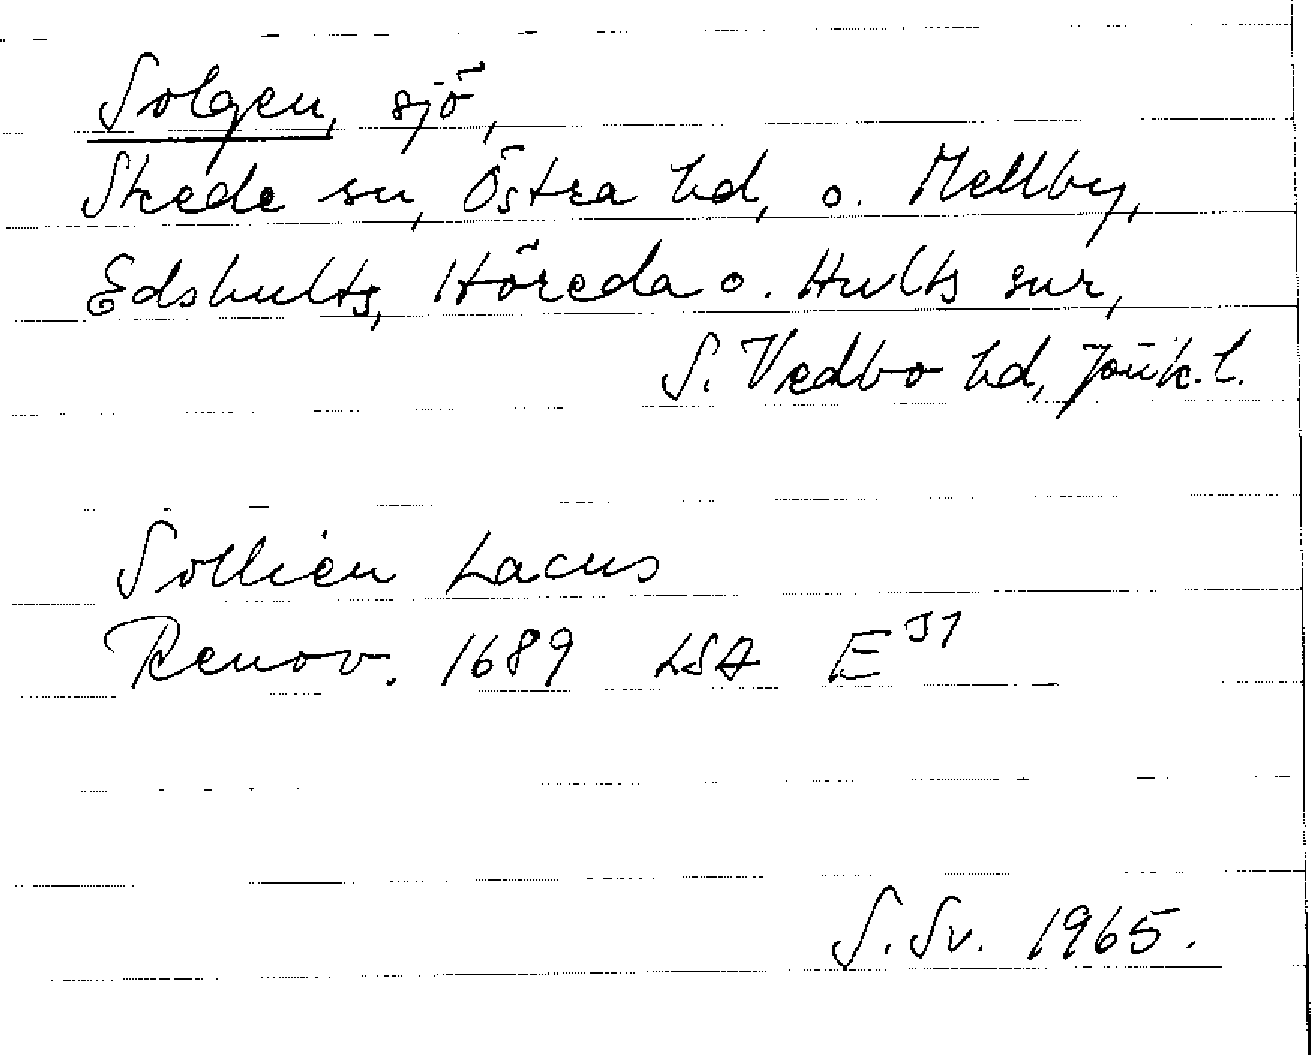 Solgen, sjö,
Skede sn, Östra hd, o. Mellby,
Edshults, Höreda o. Hults snr,
S. Vedbo hd, Jönk. l.
Sollien Lacus
Renov. 1689 LSA E
S. Sv. 1965.